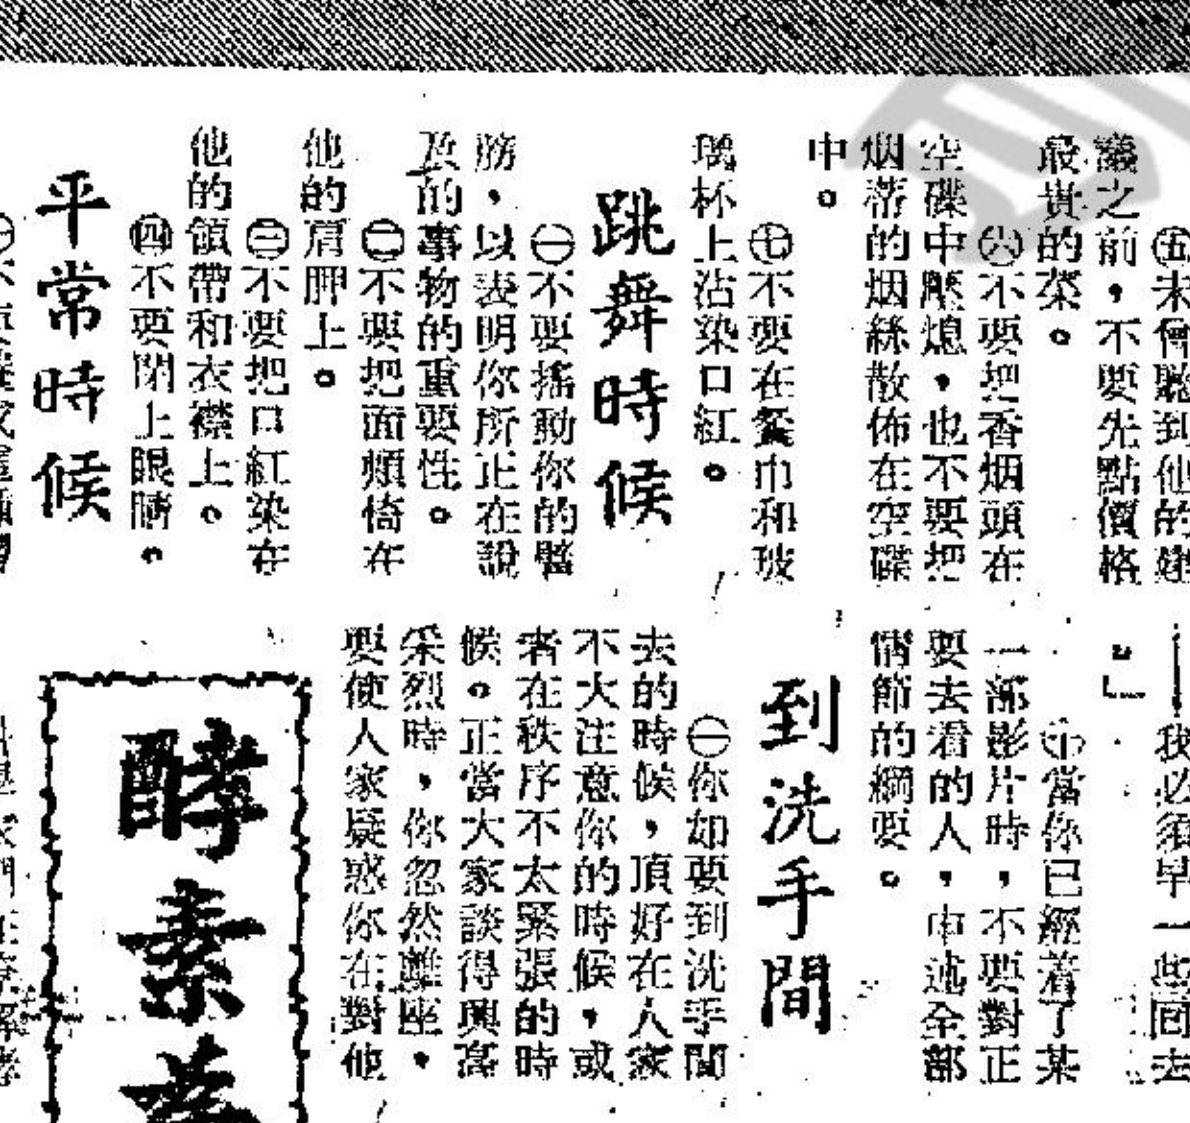 ㊄未曾聽到他的建
議之前，不要先點價格
最貴的菜。
㊅不要把香烟頭在
空碟中壓熄，也不要把
烟蒂的烟絲散佈在空碟
中。
㊆不要在餐巾和玻
璃杯上沾染口紅。
跳舞時候
㊀不要搖動你的臂
膀，以表明你所正在說
及的事物的重要性。
㊁不要把面頰倚在
他的肩胛上。
㊂不要把口紅染在
他的領帶和衣襟上。
㊃不要閉上眼睛。
平常時候
——我必須早一些回去
」
當你已經看了某
一部影片時，不要對正
要去看的人，申述全部
情節的綱要。
到洗手間
㊀你如要到洗手間
去的時候，頂好在人家
不大注意你的時候，或
者在秩序不太緊張的時
候。正當大家談得興高
采烈時，你忽然離座，
要使人家疑惑你在對他
酵素